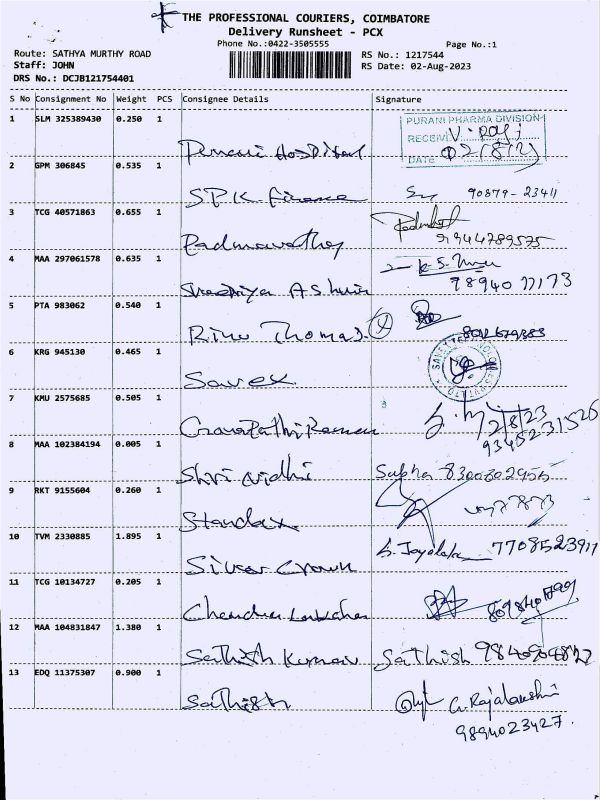 THE PROFESSIONAL COURIERS, COIMBATORE
Delivery Runsheet - PCX
Phone No.:0422-3505555
Page No.:1
Route: SATHYA MURTHY ROAD
Staff: JOHN
DRS No.: DCJB121754401
RS No.: 1217544
RS Date: 02-Aug-2023
S No Consignment No Weight PCS Consignee Details Signature
1 SLM 325389430 0.250 1
PURANI PHARMA DIVISION
RECEIVED
DATE 02/8/23
Purani Hospital
2 GPM 306845 0.535 1
SPK Finance 90879-23411
3 TCG 40571863 0.655 1
Padmavathy 9944789575
4 MAA 297061578 0.635 1
Ashwin 98940 77173
5 PTA 983062 0.540 1
Rinu Thomas
6 KRG 945130 0.465 1
Savex
7 KMU 2575685 0.505 1
Ganapathi Raman 2/8/23
9345231526
8 MAA 102384194 0.005 1
Shri nidhi Subha 8300302955
9 RKT 9155604 0.260 1
Standax
10 TVM 2330885 1.895 1
Silver Crown 7708523911
11 TCG 10134727 0.205 1
12 MAA 104831847 1.380 1
Sathish Kumar Sathish
13 EDQ 11375307 0.900 1
Sathish G. Rajalakshmi
9894023427.